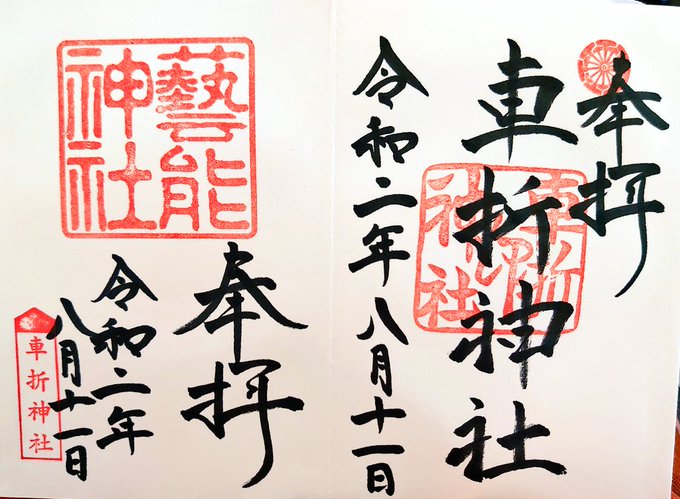 奉拝
車折神社
車折神社
令和二年八月十一日
藝能神社
奉拝
令和二年
八月十一日
車折神社